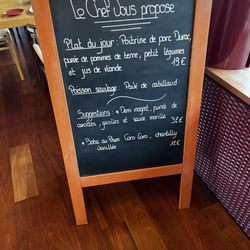 Le Chef Vous propose
Plat du jour : Poitrine de porc Duroc,
purée de pommes de terre, petit légumes
et jus de viande 19€
Poisson sauvage : Pavé de cabillaud
Suggestions : • Demi magret, purée de
carottes, girolles et sauce morille 32€
• Baba au Rhum Coro Coro, chantilly
vanillée 12€